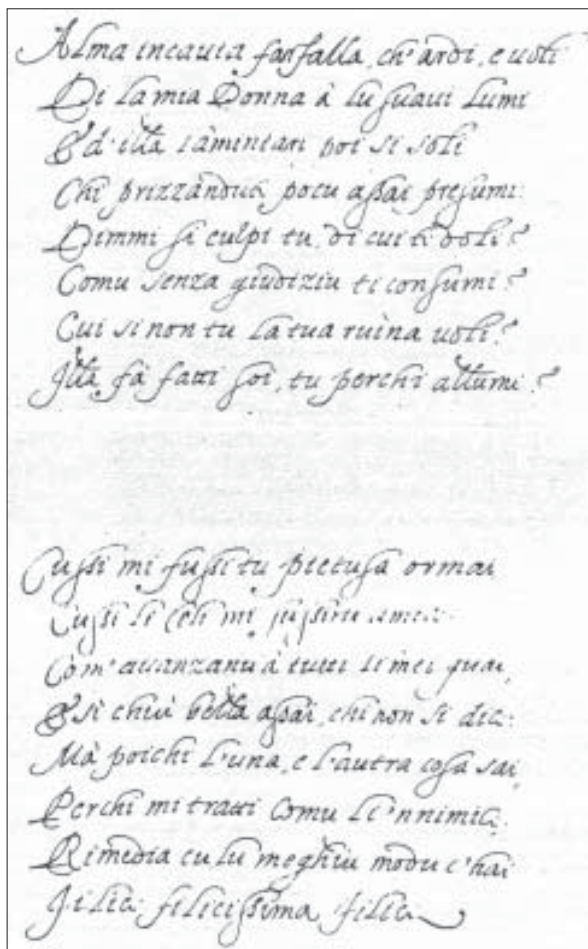 Alma incauta farfalla, ch'ardi, e uoli
Di la mia Donna à lu suaui lumi
Ed' illa lamintari poi si soli
Chi prizzandoti pocu assai presumi:
Dimmi si culpi tu, di cui ti doli?
Comu senza giudiziu ti consumi?
Cui si non tu la tua ruina uoli?
Illa fà fatti soi, tu perchi allumi?
Cussi mi fussi tu pietusa ormai,
Cussi li celi mi fussiru
Com' auanzanu à tutti li mei guai,
E si chiù bella assai, chi non si dici:
Mà poichi l'una, e l'autra cosa sai,
Perchi mi tratti comu li 'nnimici:
Rimedia cu lu meghiu modu c'hai
filici filicissima filici